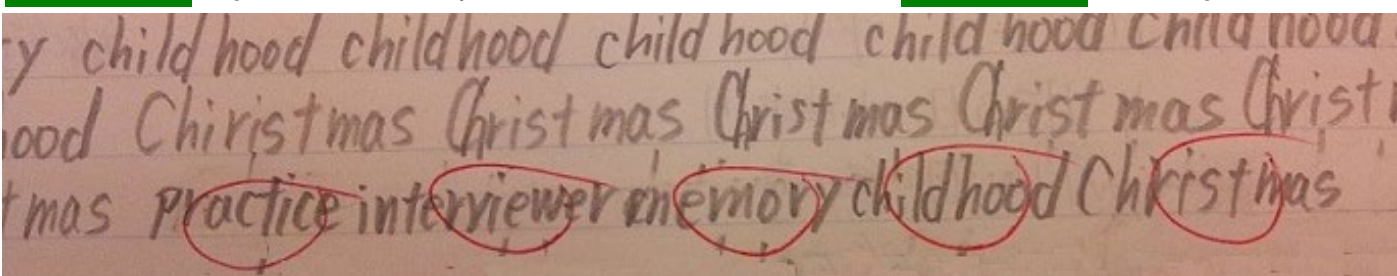 y childhood childhood childhood childhood childhood
ood Chiristmas Christmas Christmas Christmas Christ
tmas practice interviewer memory childhood Christmas